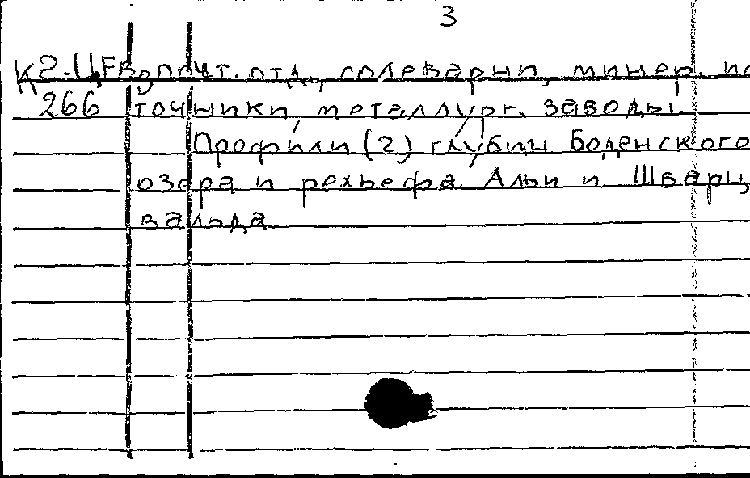 3
К2-Ц.Ев. почт. отд., солеварни, минер. ис
266 точники, металлург. заводы.
Профили (2) глубин Боденского
озера и рельефа Альп и Шварц
вальда